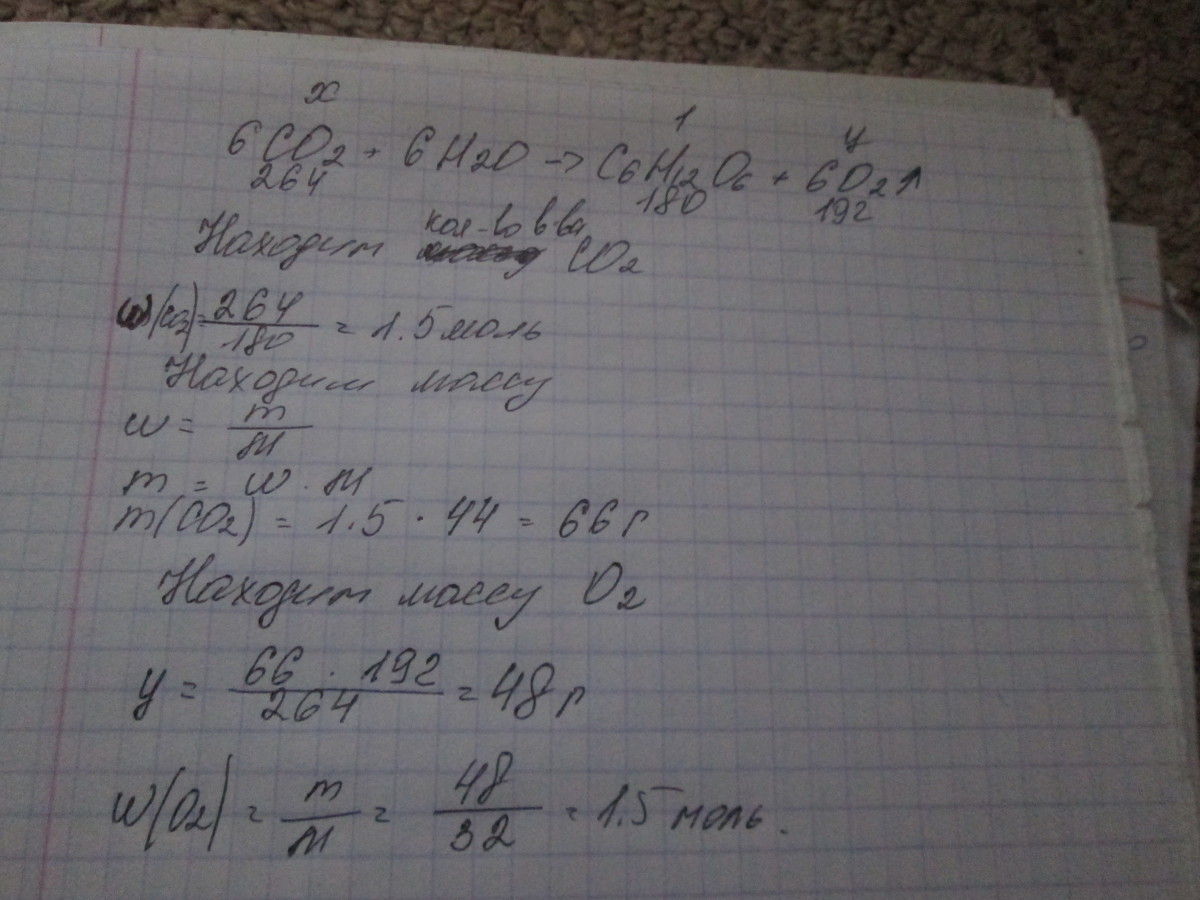 x 1 y
6CO2 + 6H2O -> C6H12O6 + 6O2↑
264 180 192
кол-во в-ва
Находим CO2
w(CO2) = 264/180 = 1.5 моль
Находим массу
w = m/M
m = w · M
m(CO2) = 1.5 · 44 = 66 г
Находим массу O2
y = 66 · 192/264 = 48 г
W(O2) = m/M = 48/32 = 1.5 моль.